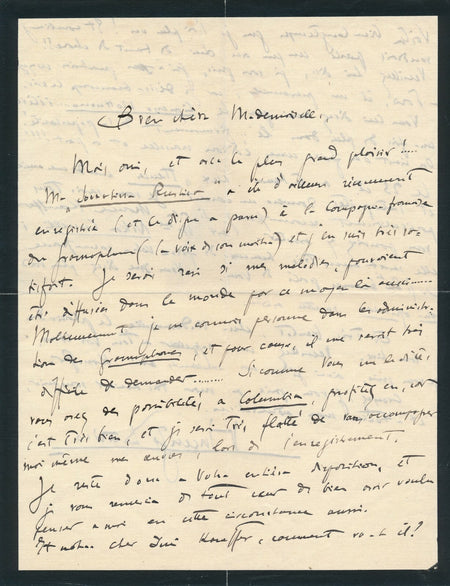 Bien chère Mademoiselle,
Mais, oui, et avec le plus grand plaisir!....
Ma " " a été d'ailleurs récemment
enregistrée (et le disque a paru) à la Compagnie française
du Gramophone (la voix de son maître) et j'en suis très
. Je serai ravi si mes mélodies pouvaient
être diffusées dans le monde par ce moyen là aussi.....
Malheureusement je ne connais personne dans les administra-
tions des Gramophones, et pour cause, il me serait très
difficile de demander........ Si comme vous me le dites,
vous avez des possibilités à Columbia profitez en, car
c'est très bien, et je serai très flatté de vous accompagner
moi même mes œuvres, lors de l'enregistrement.
Je reste donc à votre entière disposition, et
je vous remercie de tout cœur de bien avoir voulu
penser à moi en cette circonstance aussi.
Et notre cher , comment va-t-il?